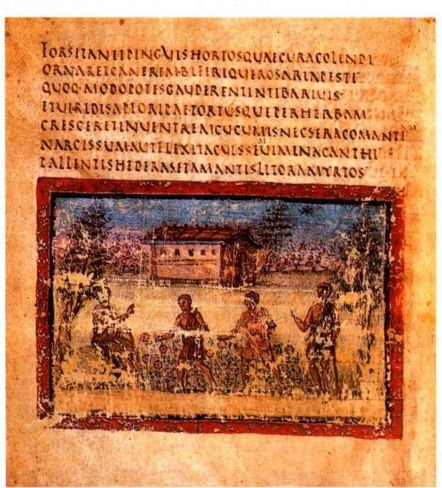 FORSITANETPINGVISHORTOSQVAECVRACOLENDI
ORNARETCANEREMBIFERIQVEROSARIAPESTI
QVOQ·MODOPOTISGAVDERENTINTIBARIVIS
ETVIRIDISAPIORIPAETORTVSQVEPERHERBAM
CRESCERETINVENTREMCVCVMISNECSERACOMANTEM
NARCISSVMAVTFLEXITACVISSEMVIMINACANTHI
PALLENTISHEDERASETAMANTISLITORAMYRTOS